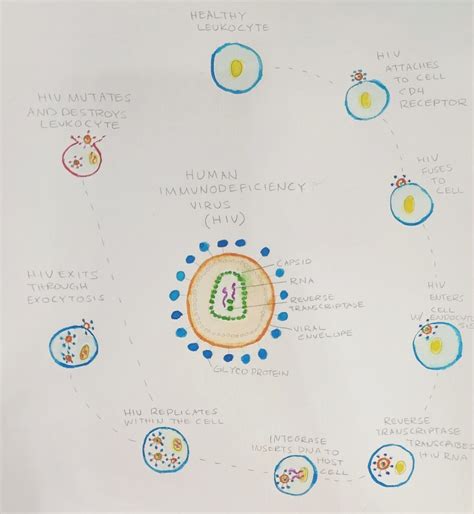 HEALTHY
LEUKOCYTE
HIV
ATTACHES
TO CELL
CD4
RECEPTOR
HIV
FUSES
TO CELL
HIV
ENTERS
CELL
W/ ENDOCYTOSIS
REVERSE
TRANSCRIPTASE
TRANSCRIBES
HIV RNA
INTEGRASE
INSERTS DNA TO
HOST
CELL
HIV REPLICATES
WITHIN THE CELL
HIV EXITS
THROUGH
EXOCYTOSIS
HIV MUTATES
AND DESTROYS
LEUKOCYTE
HUMAN
IMMUNODEFICIENCY
VIRUS
(HIV)
CAPSID
RNA
REVERSE
TRANSCRIPTASE
VIRAL
ENVELOPE
GLYCOPROTEIN